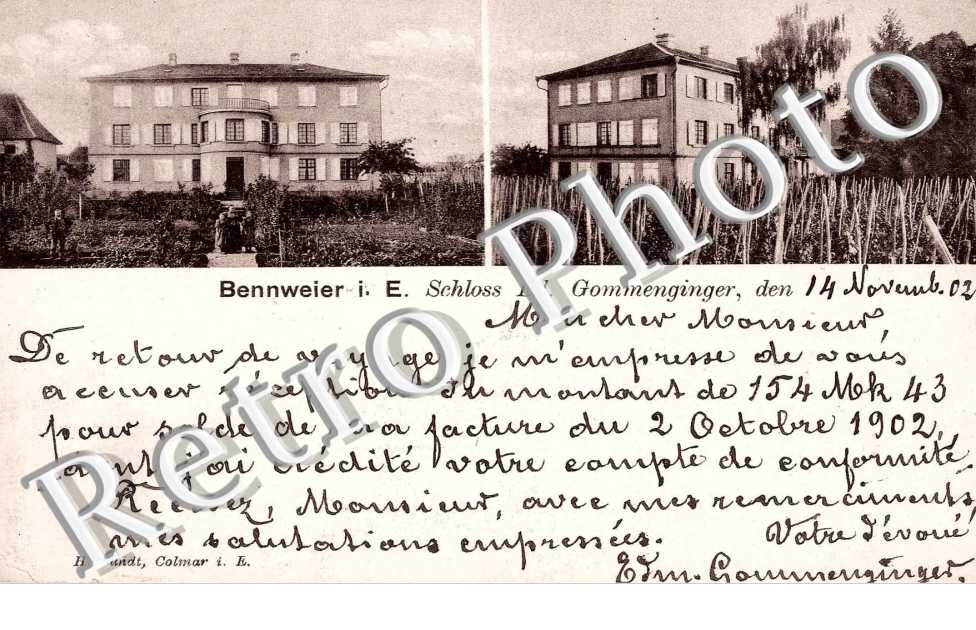 Bennweier i. E. Schloss Gommenginger, den 14 Novemb. 02
Mon cher Monsieur,
De retour de voyage je m'empresse de vous
accuser réception du montant de 154 Mk 43
pour solde de ma facture du 2 Octobre 1902,
dont j'ai crédité votre compte de conformité.
Recevez, Monsieur, avec mes remerciments
mes salutations empressées. Votre dévoué
Colmar i. E.
Edm. Gommenginger.
Retro Photo